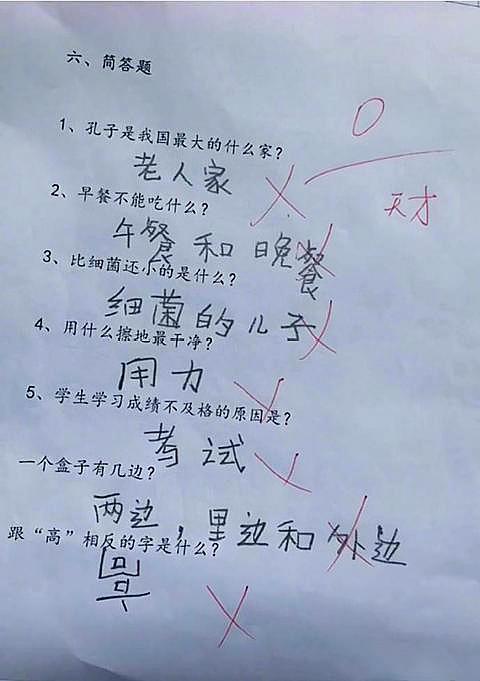 六、简答题
0
天才
1、孔子是我国最大的什么家?
老人家
2、早餐不能吃什么?
午餐和晚餐
3、比细菌还小的是什么?
细菌的儿子
4、用什么擦地最干净?
用力
5、学生学习成绩不及格的原因是?
考试
一个盒子有几边?
两边，里边和外边
跟“高”相反的字是什么?